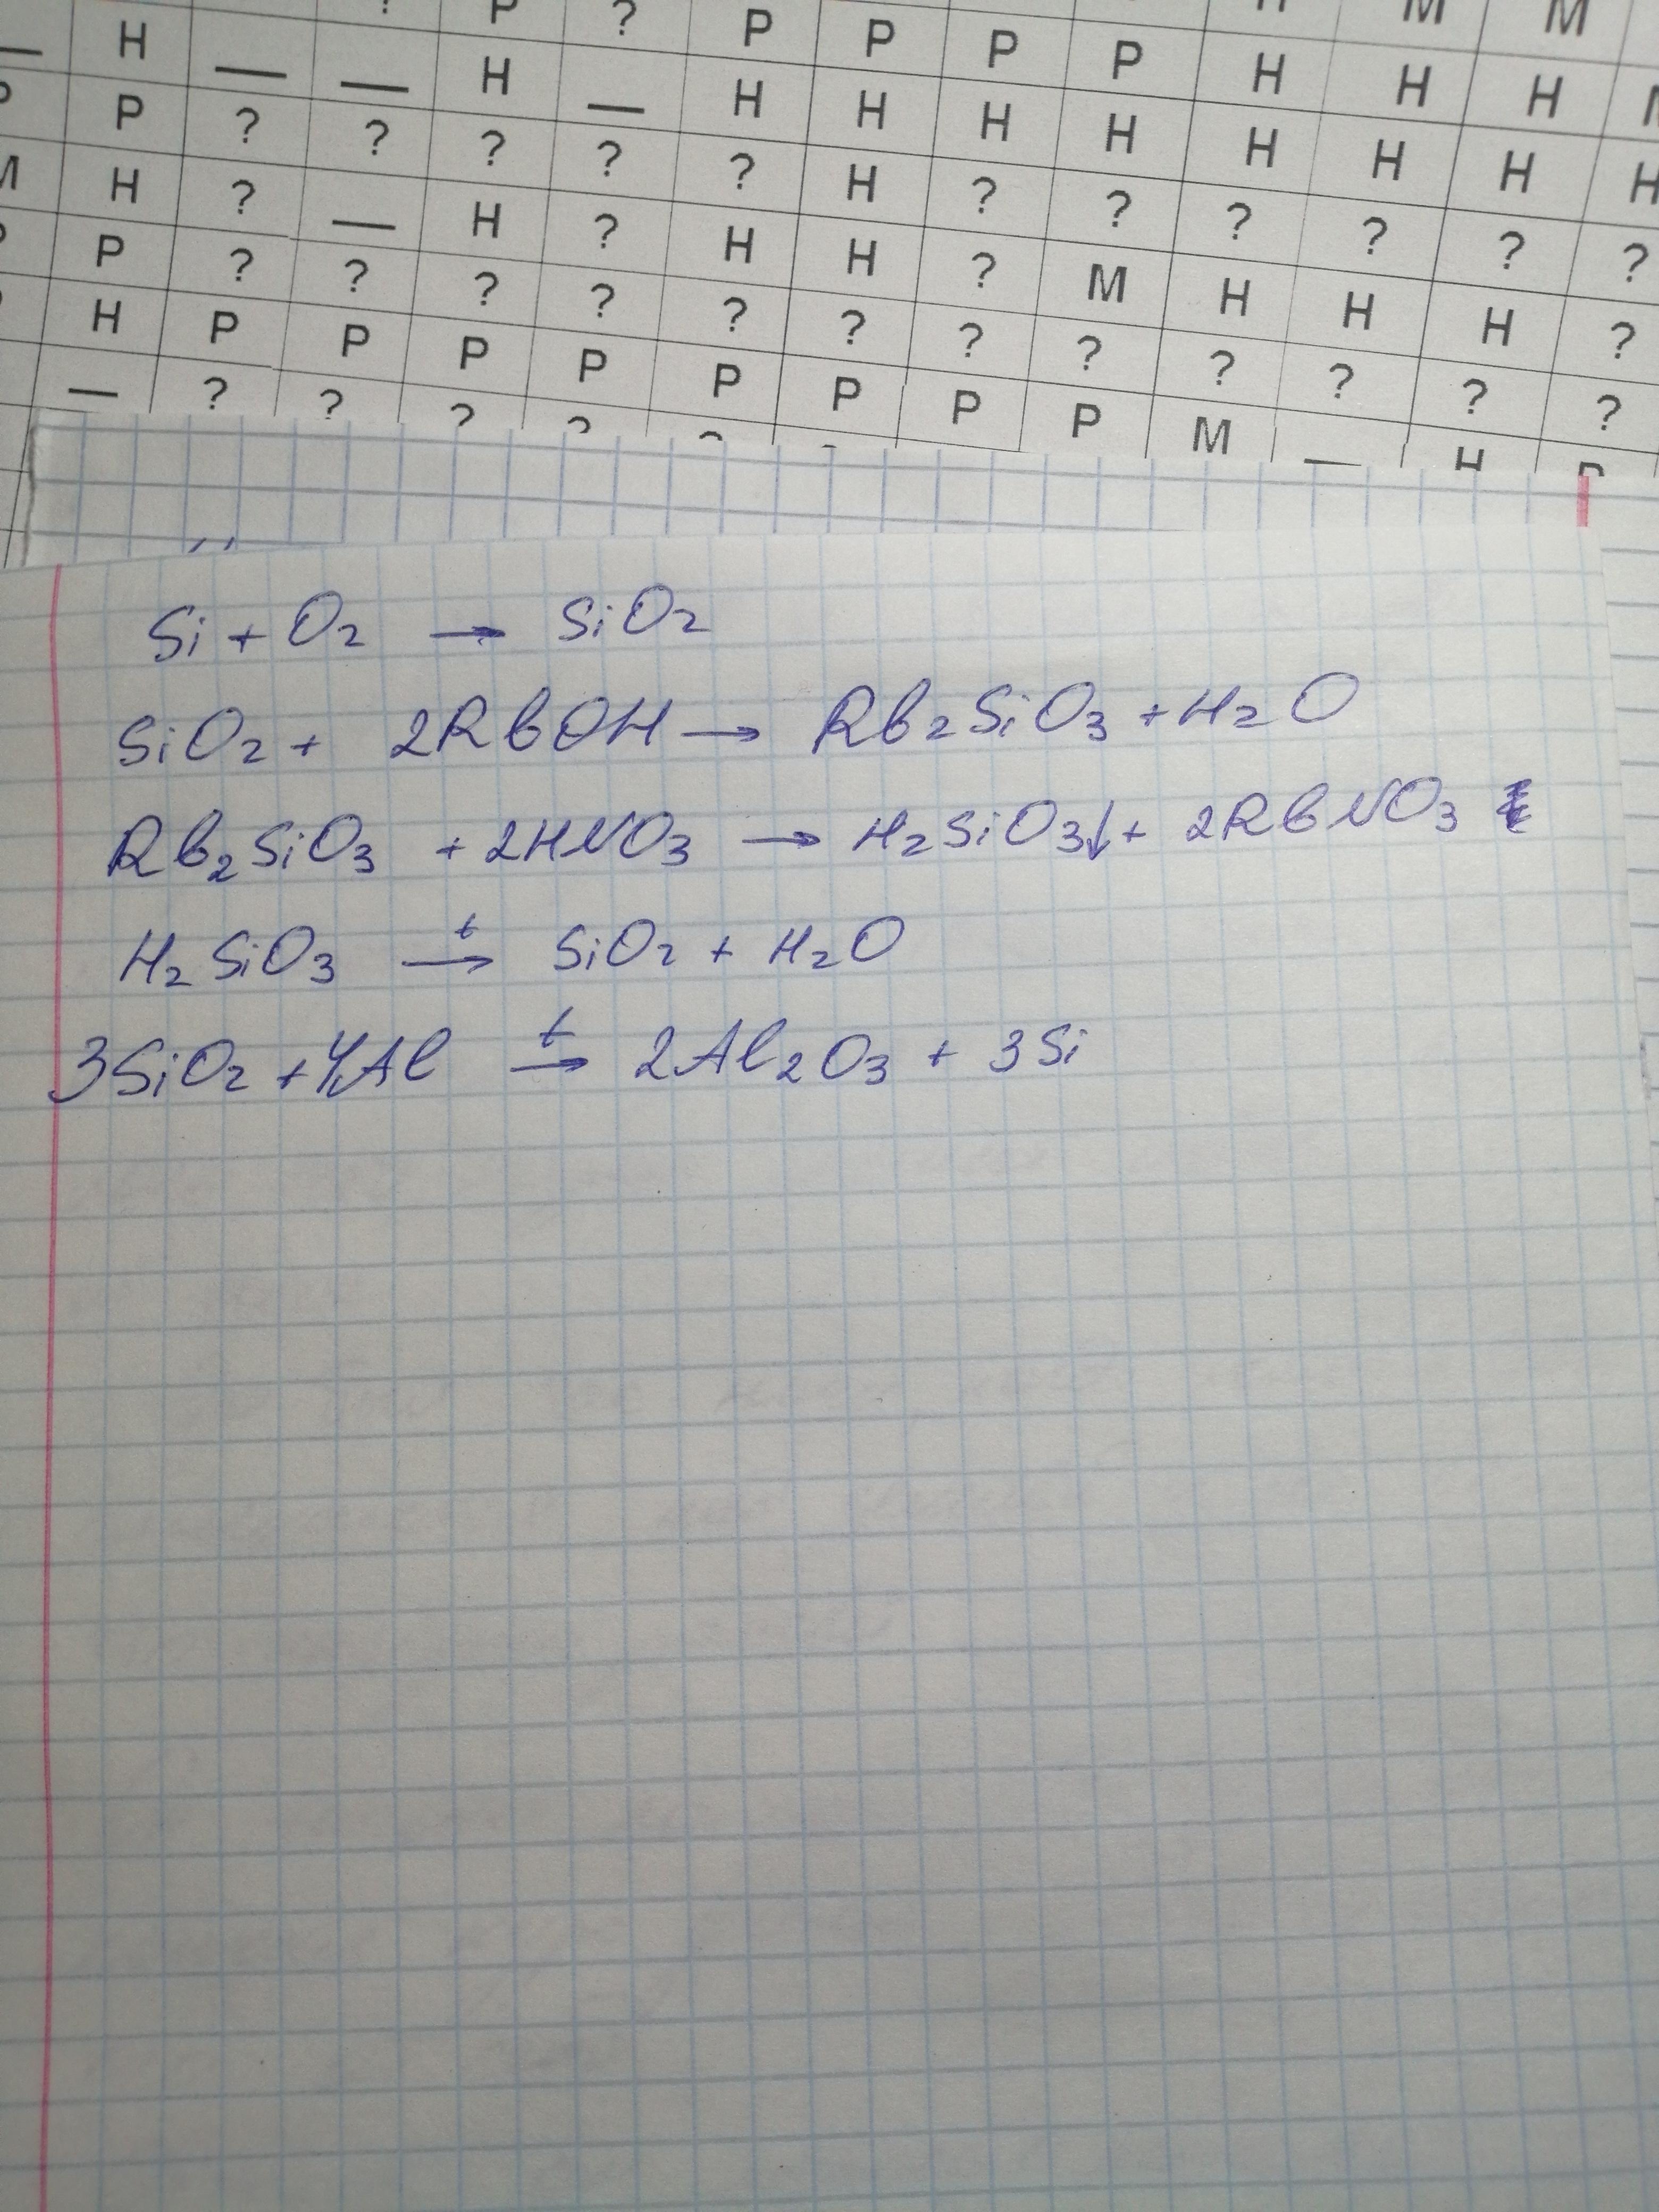 ? Р ? Р Р Р Р Н М М
— Н — — Н — Н Н Н Н Н Н Н
Р Р ? ? ? ? ? Н ? ? ? ? ? Н
М Н ? — Н ? Н Н ? М Н Н Н ?
Р ? ? ? ? ? ? ? ? ? ? ? ?
Н Р Р Р Р Р Р Р Р М — Н Р
— ? ? ? ?
Si + O₂ → SiO₂
SiO₂ + 2RbOH → Rb₂SiO₃ + H₂O
Rb₂SiO₃ + 2HNO₃ → H₂SiO₃↓ + 2RbNO₃
H₂SiO₃ t→ SiO₂ + H₂O
3SiO₂ + 4Al t→ 2Al₂O₃ + 3Si